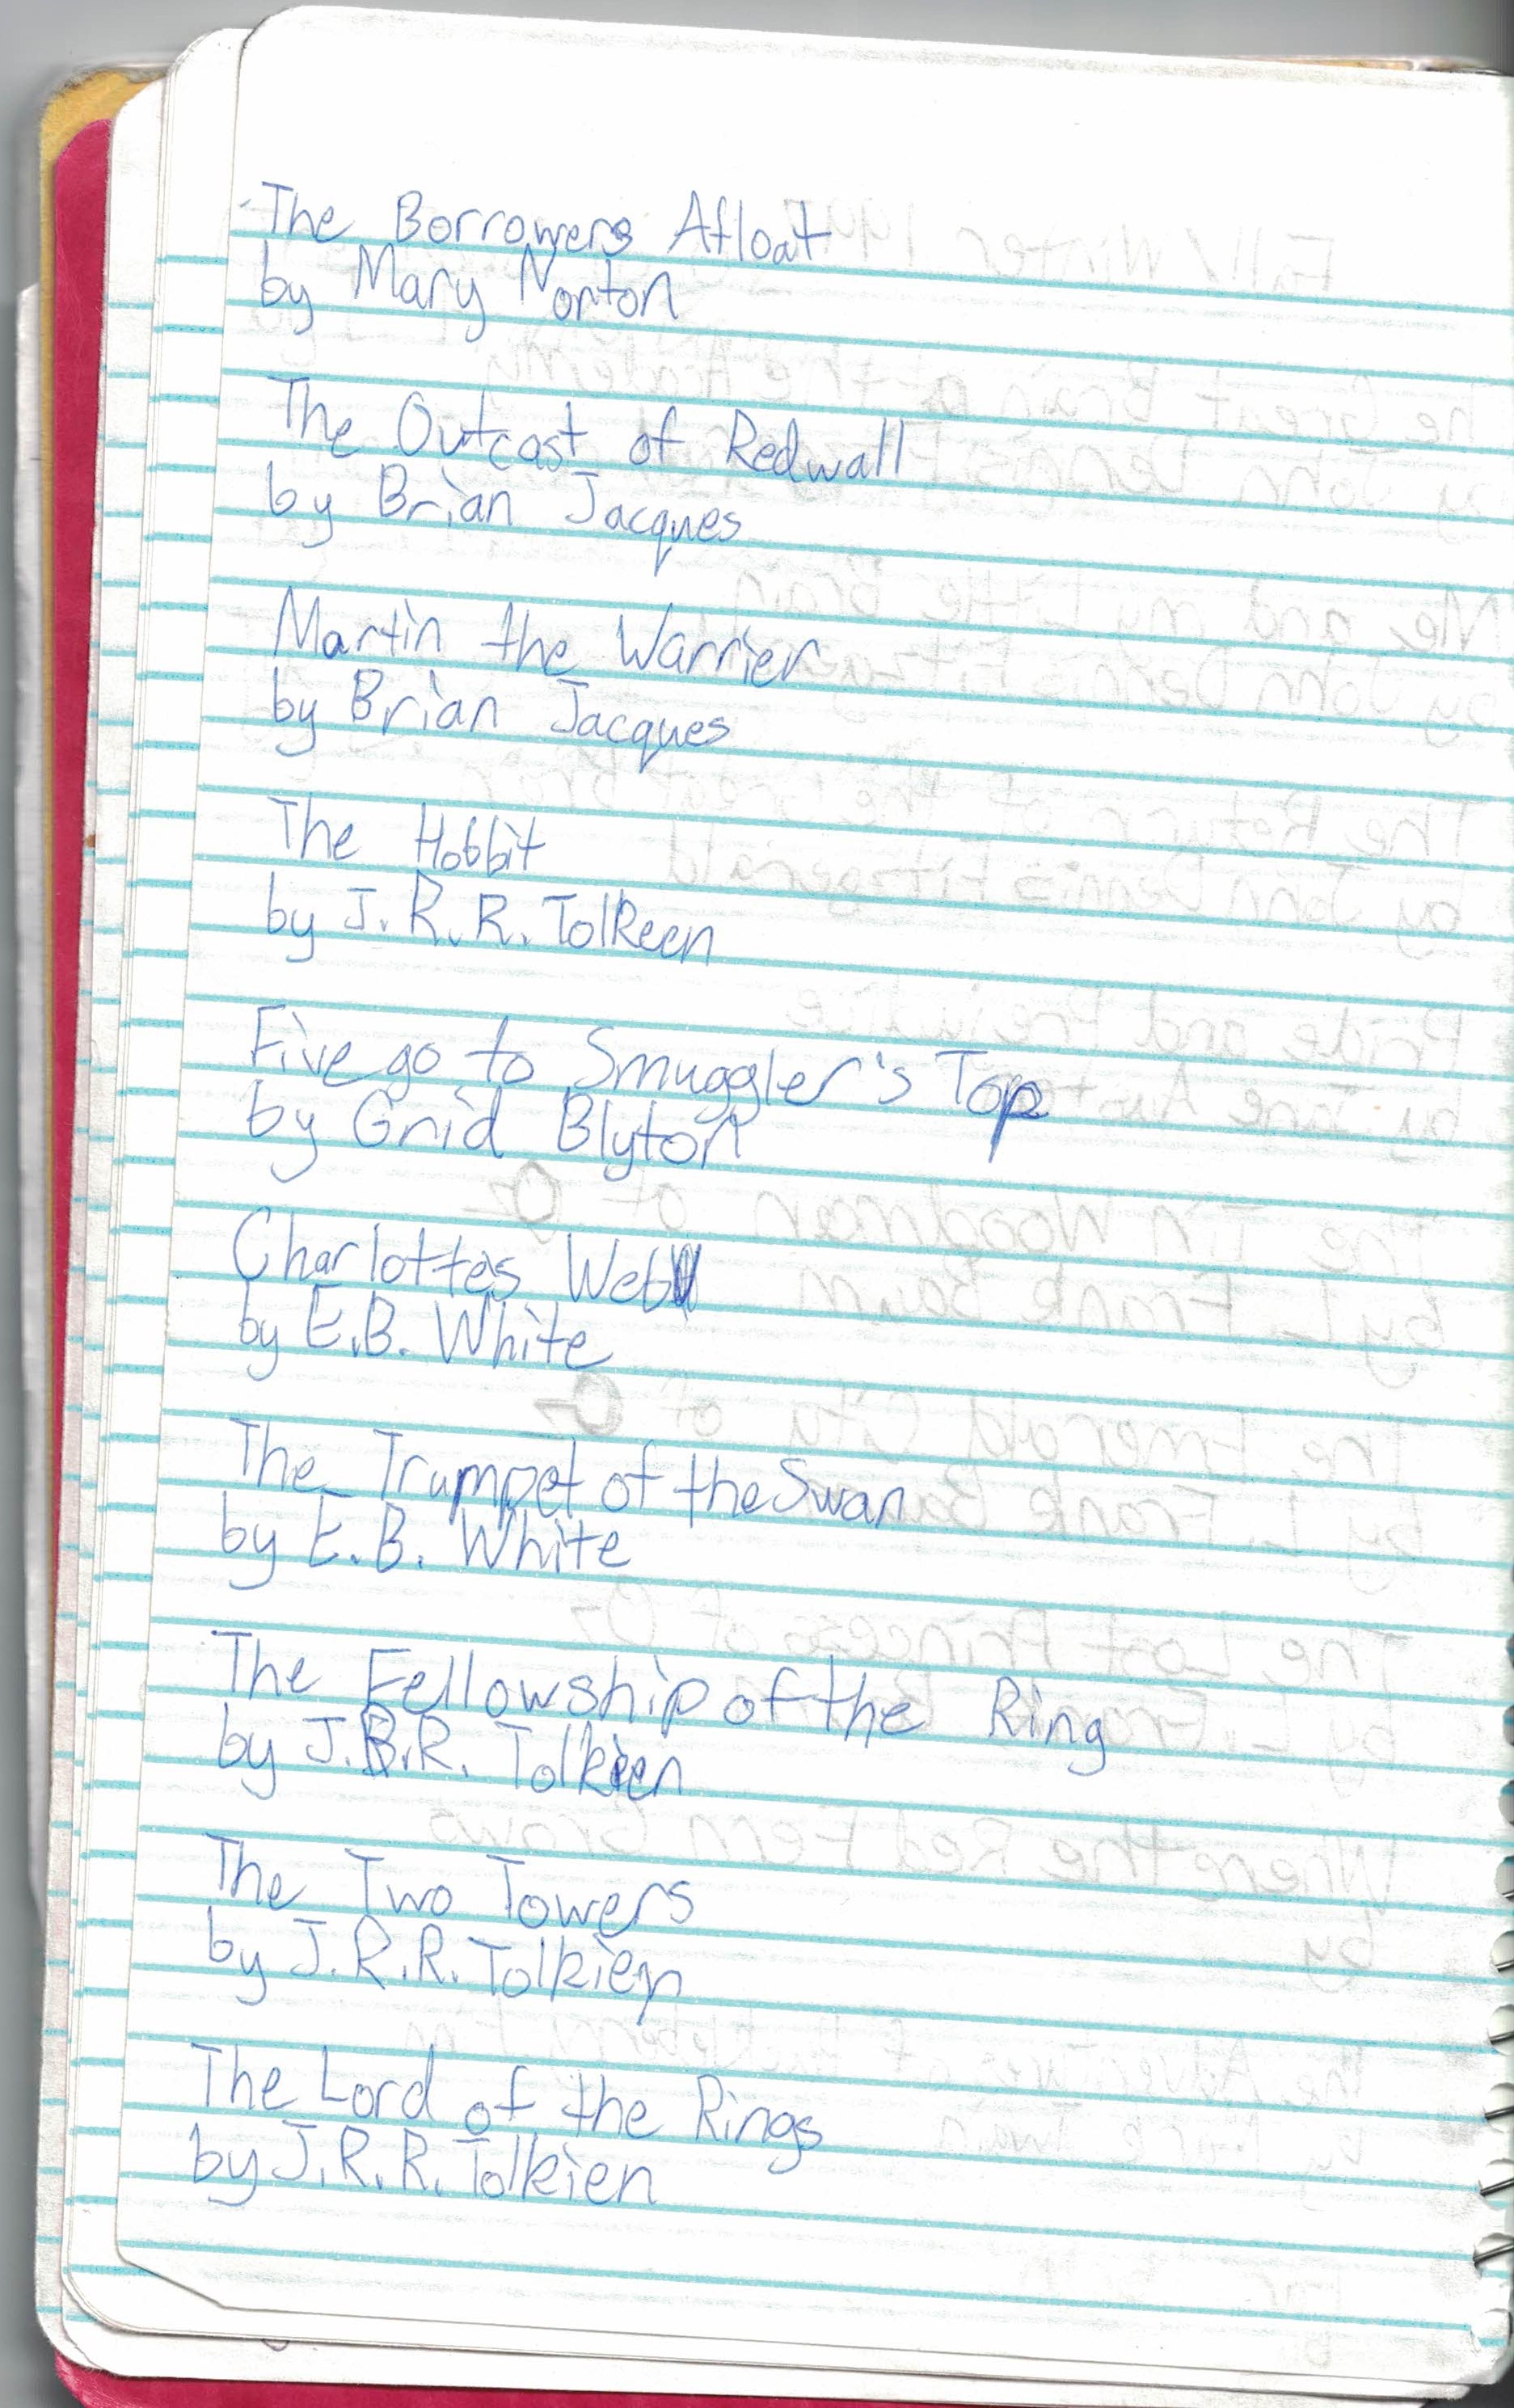 The Borrowers Afloat
by Mary Norton
The Outcast of Redwall
by Brian Jacques
Martin the Warrier
by Brian Jacques
The Hobbit
by J. R. R. Tolkeen
Five go to Smuggler's Top
by Enid Blyton
Charlotte's Web
by E.B. White
The Trumpet of the Swan
by E. B. White
The Fellowship of the Ring
by J.R.R. Tolkien
The Two Towers
by J.R.R. Tolkien
The Lord of the Rings
by J.R.R. Tolkien